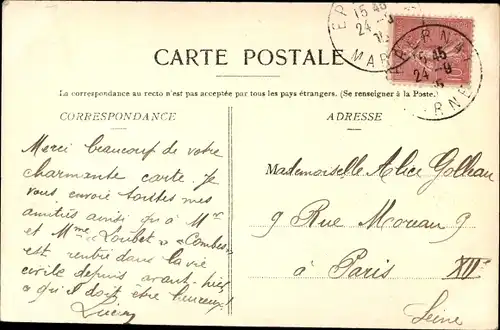 CARTE POSTALE
La correspondance au recto n'est pas acceptée par tous les pays étrangers. (Se renseigner à la Poste.)
CORRESPONDANCE
Merci beaucoup de votre
charmante carte. Je
vous envoie toutes mes
amitiés ainsi qu'à Mr
et Mme "Loubet" "Combes"
est rentré dans la vie
civile depuis avant-hier
"qu'il doit être heureux!
Lucien
ADRESSE
Mademoiselle Alice
9 Rue Moreau 9
à Paris XII
Seine
EPERNAY
15 45
24 -9
MARNE
EPERNAY
15 45
24 -9
MARNE